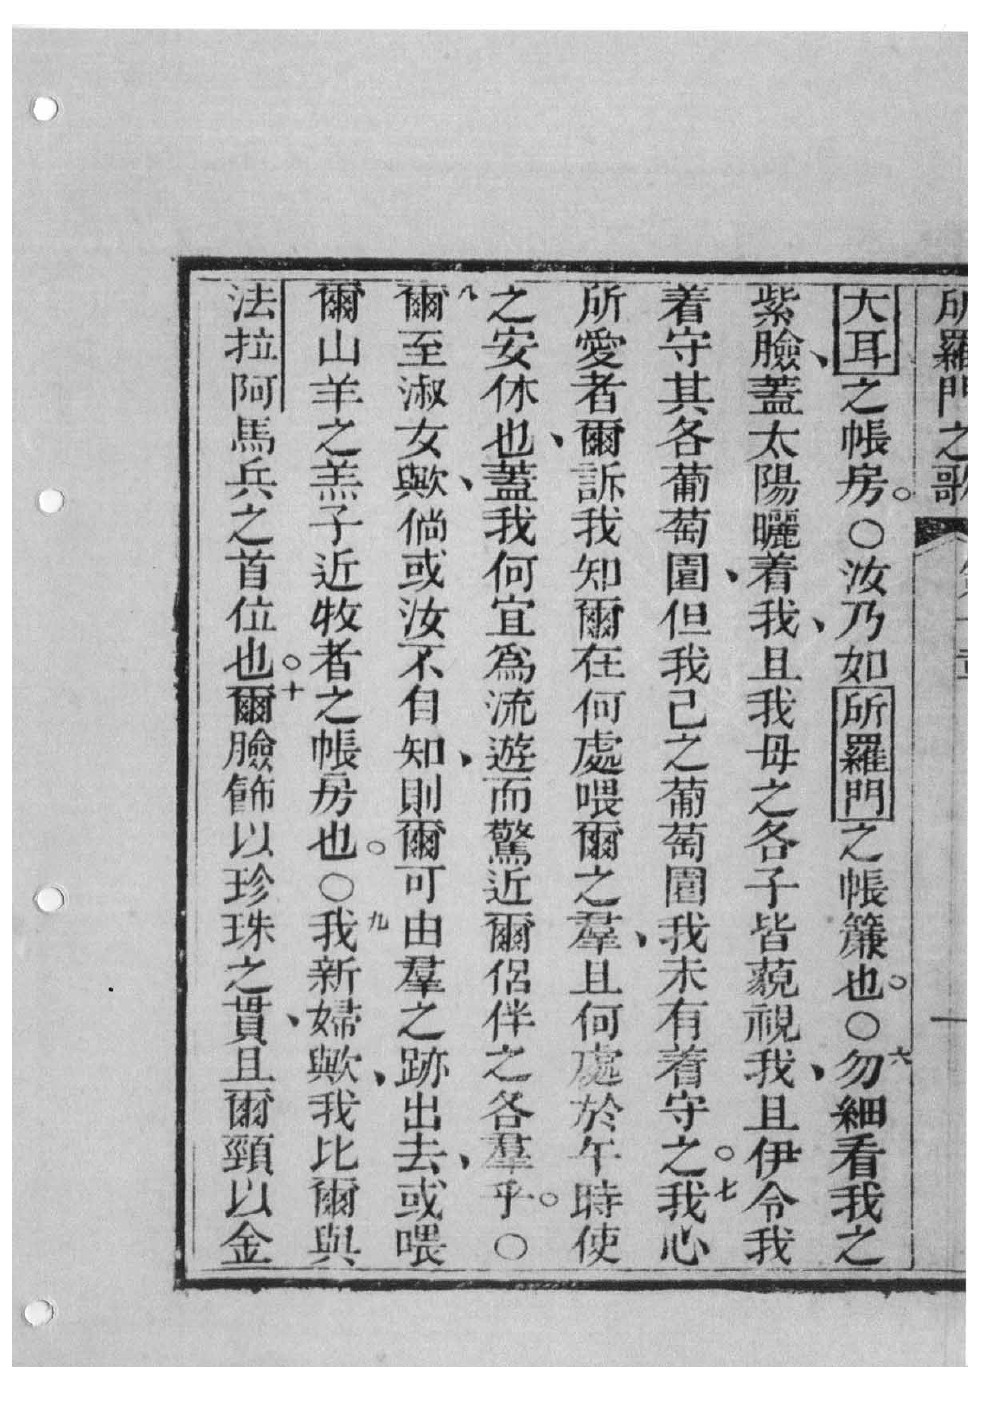 所羅門之歌 第一章 一
大耳之帳房。○汝乃如所羅門之帳簾也。○六勿細看我之
紫臉、蓋太陽曬着我、且我母之各子皆藐視我、且伊令我
着守其各葡萄園、但我己之葡萄園我未有着守之。○七我心
所愛者、爾訴我知爾在何處喂爾之羣、且何處於午時使
之安休也、蓋我何宜為流遊而驚近爾侶伴之各羣乎。○
八爾至淑女歟、倘或汝不自知、則爾可由羣之跡出去、或喂
爾山羊之羔子近牧者之帳房也。○九我新婦歟、我比爾與
法拉阿馬兵之首位也。十爾臉飾以珍珠之貫、且爾頸以金